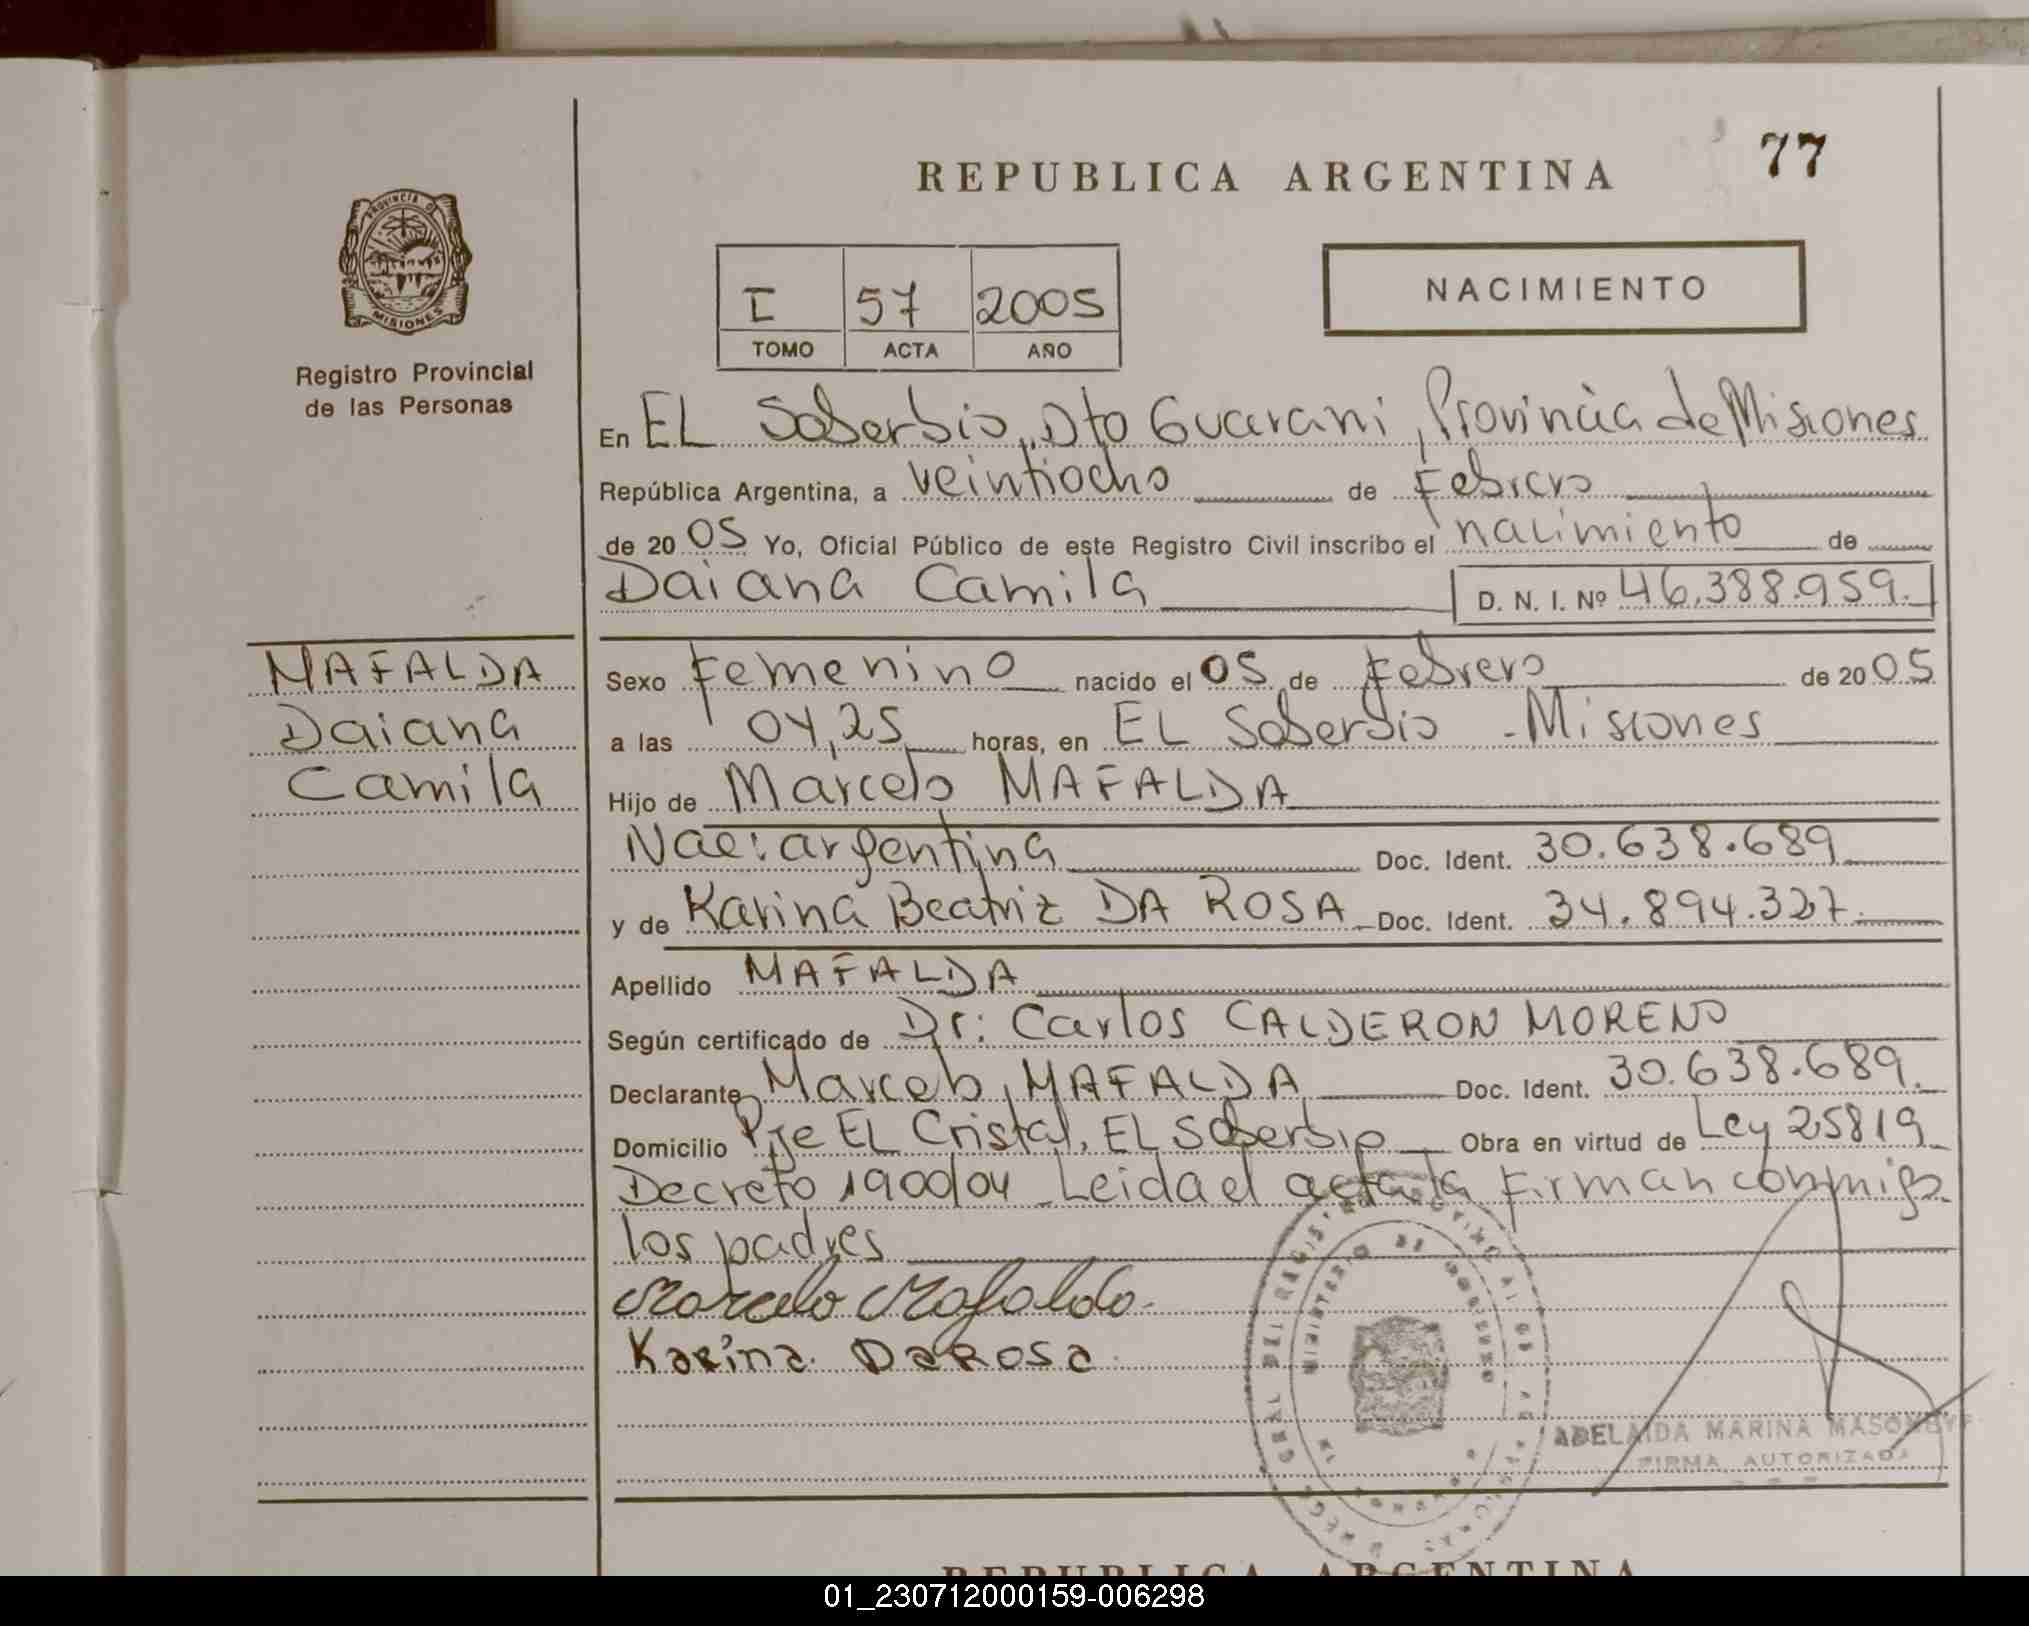 77
REPUBLICA ARGENTINA
PROVINCIA D
MISIONES
Registro Provincial
de las Personas
I 57 2005
TOMO ACTA AÑO
NACIMIENTO
En EL Soberbio, Dto Guarani, Provincia de Misiones
República Argentina, a veintiocho de Febrero
de 2005 Yo, Oficial Público de este Registro Civil inscribo el nacimiento de
Daiana Camila D. N. I. Nº 46.388.959.
MAFALDA
Daiana
Camila
Sexo Femenino nacido el 05 de Febrero de 2005
a las 04,25 horas, en EL Soberbio - Misiones
Hijo de Marcelo MAFALDA
Nac: argentina Doc. Ident. 30.638.689
y de Karina Beatriz DA ROSA Doc. Ident. 34.894.327.
Apellido MAFALDA
Según certificado de Dr: Carlos CALDERON MORENO
Declarante Marcelo, MAFALDA Doc. Ident. 30.638.689.
Domicilio Pje EL Cristal, EL Soberbio Obra en virtud de Ley 25819
Decreto 1900/04 Leida el acta la Firman conmigo
los padres
Marcelo Mafaldo.
Karina. DaRosa
MINISTERIO DE GOBIERNO
ADELAIDA MARINA
FIRMA AUTORIZADA
REPUBLICA ARGENTINA
01_230712000159-006298